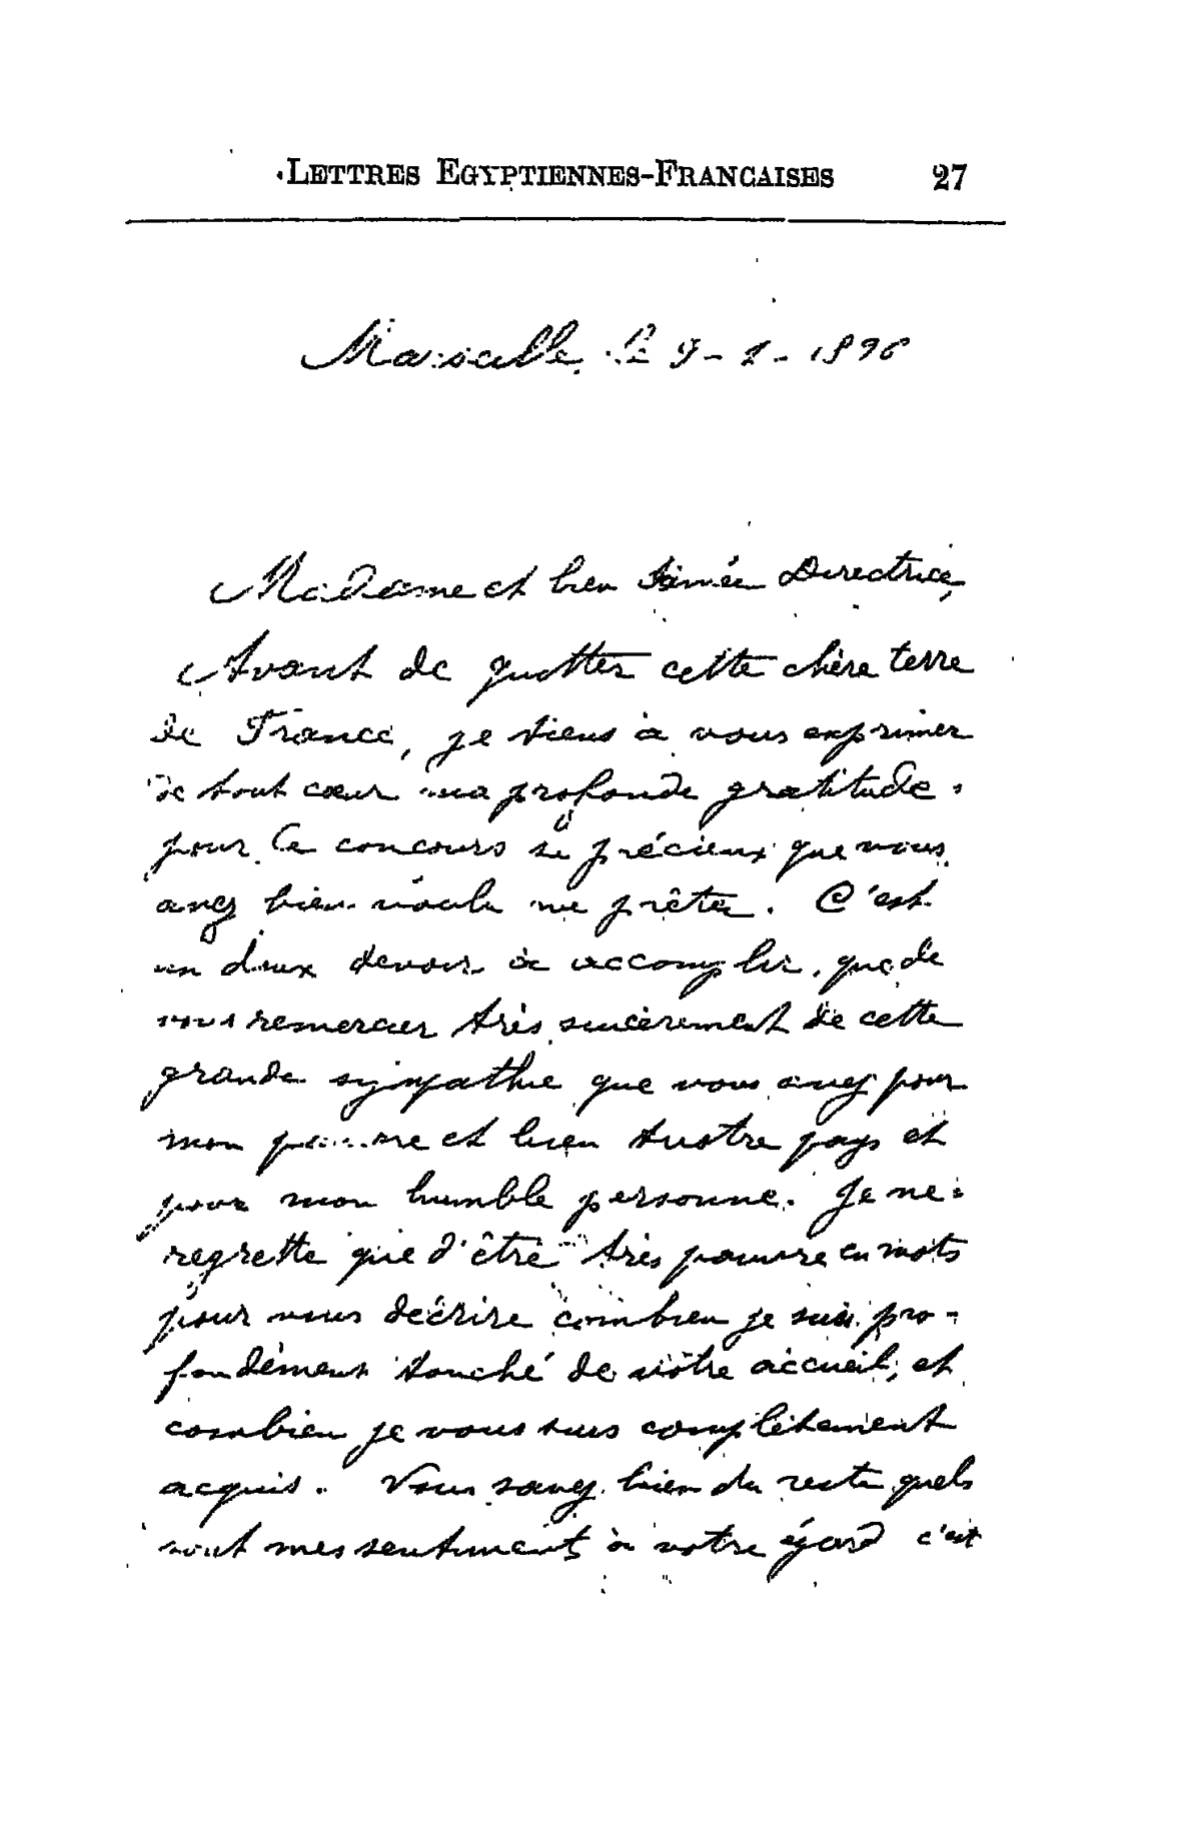 LETTRES EGYPTIENNES-FRANCAISES 27
Marseille, le 9-1-1896
Madame et bien aimée Directrice,
Avant de quitter cette chère terre
de France, je viens à vous exprimer
de tout cœur ma profonde gratitude
pour le concours si précieux que vous
avez bien voulu me prêter. C'est
un doux devoir à accomplir, que de
vous remercier très sincèrement de cette
grande sympathie que vous avez pour
mon pauvre et bien triste pays et
pour mon humble personne. Je ne
regrette que d'être très pauvre en mots
pour vous décrire combien je suis pro-
fondément touché de votre accueil, et
combien je vous suis complètement
acquis. Vous savez bien du reste quels
sont mes sentiments à votre égard c'est